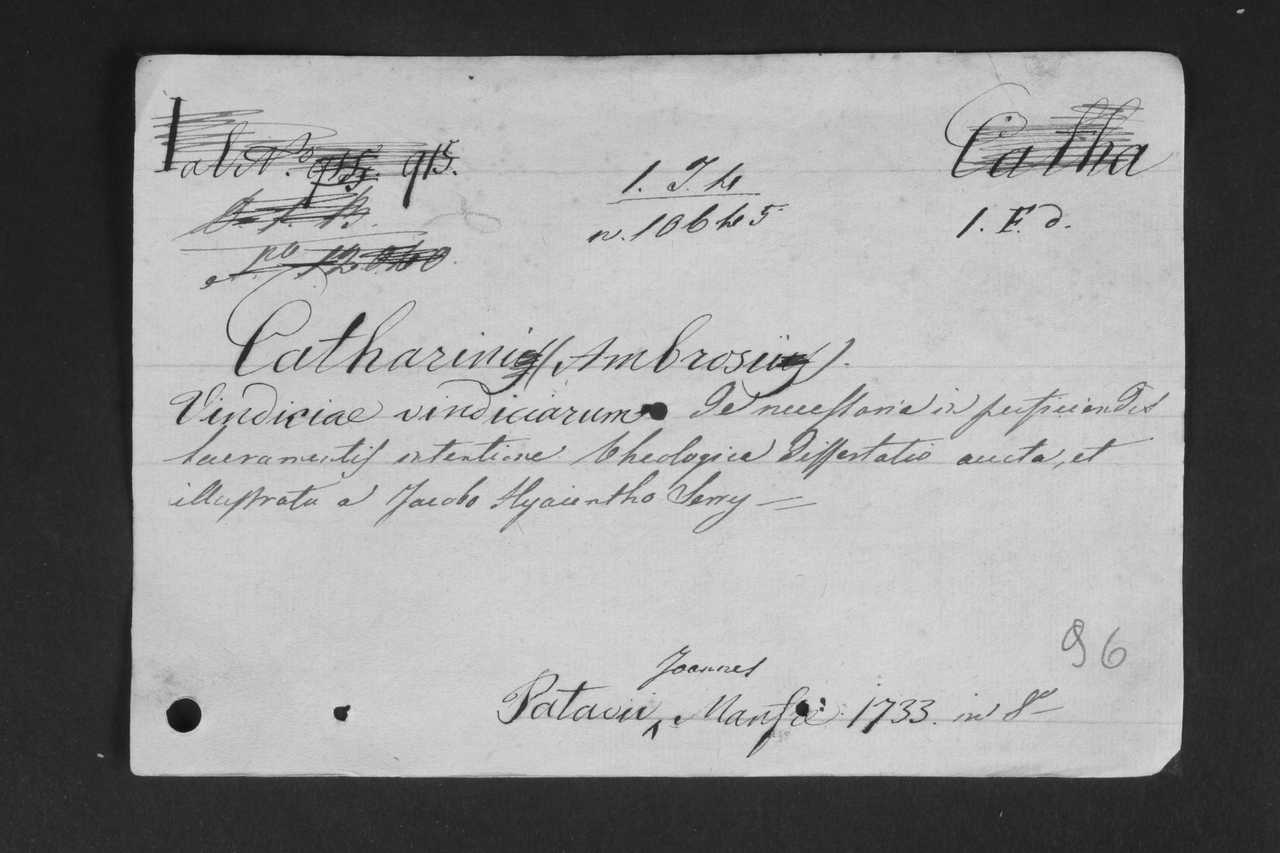 915. 915.
Catha
1. J. 4
n. 10645
1. F. d.
Catharini (Ambrosii).
Vindiciae vindiciarum De necessaria in perficiendis
sacramentis intentione theologica dissertatio aucta, et
illustrata a Jacobo Hyacintho Serry
96
Joannes
Patavii Manfrè 1733. in 8º